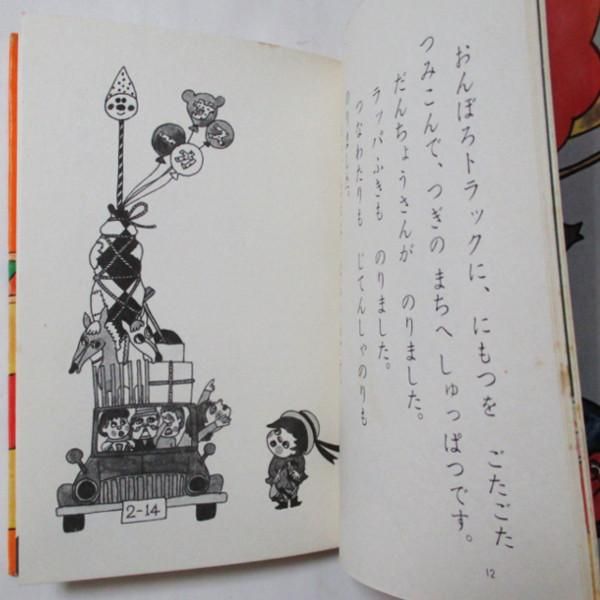 おんぼろトラックに、にもつを ごたごた
つみこんで、つぎの まちへ しゅっぱつです。
だんちょうさんが のりました。
ラッパふきも のりました。
つなわたりも じてんしゃのりも
のりました。
12
2-14